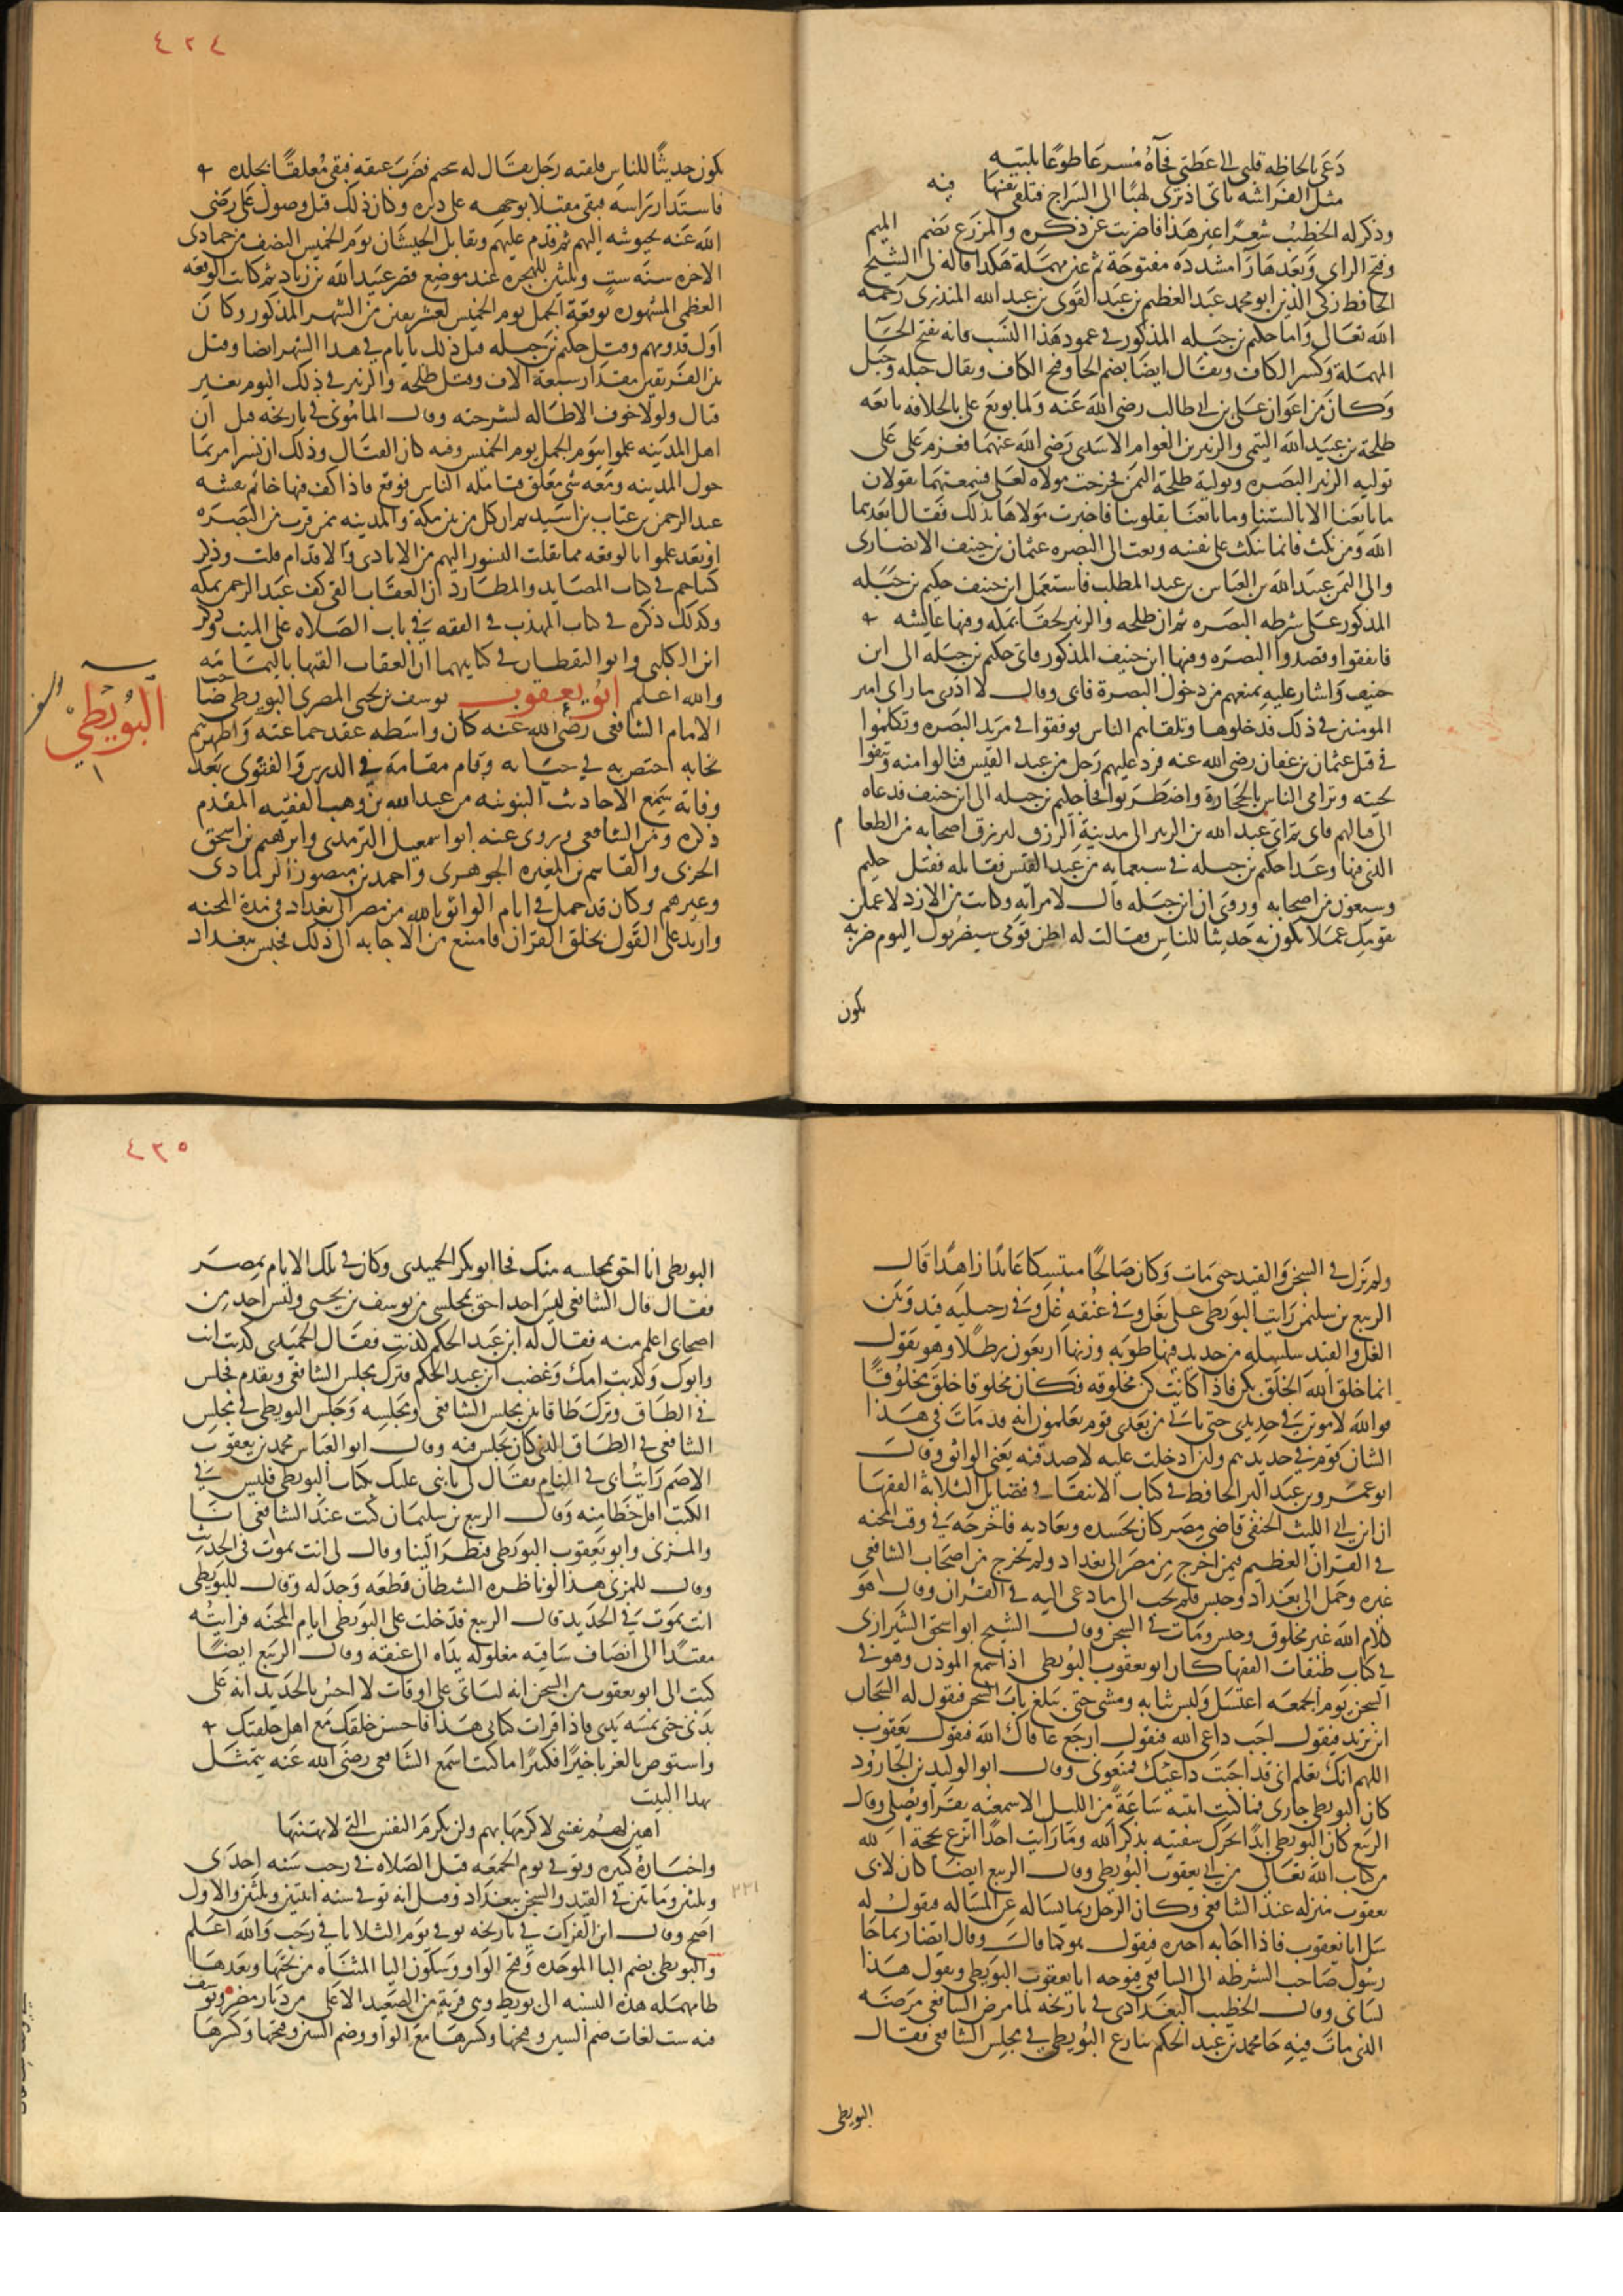 دعى بالحاظه قلبى الى عطتى فجاه مسرعا طوعا بلبيه
مثل الفراشه تاتى اذ ترى لهبا الى السراج فتلقى نفسها فيه
وذكر له الخطيب شعرا غير هذا فاضربت عن ذكره والمزرع بضم الميم
وفتح الزاى وبعدها را مشدده مفتوحة ثم عين مهملة هكذا قاله لى الشيخ
الحافظ زكى الدين ابو محمد عبد العظيم بن عبد القوى بن عبد الله المنذرى رحمه
الله تعالى واما حكيم بن جبله المذكور فى عمود هذا النسب فانه بفتح الحآ
المهملة وكسر الكاف ويقال ايضا بضم الحا وفتح الكاف ويقال جبله وجبل
وكان من اعوان على بن ابى طالب رضى الله عنه ولما بويع على بالخلافه بايعه
طلحة بن عبيد الله التيمى والزبير بن العوام الاسدى رضى الله عنهما فعزم على على
توليه الزبير البصره وتولية طلحة اليمن فخرجت مولاه لعلى فسمعتهما يقولان
ما بايعنا الا بالسنتنا وما بايعنا بقلوبنا فاخبرت مولاها بذلك فقال ابعدهما
الله ومن نكث فانما ينكث على نفسه وبعث الى البصره عثمان بن حنيف الانصارى
والى اليمن عبيد الله بن العباس بن عبد المطلب فاستعمل ابن حنيف حكيم بن جبله
المذكور على شرطه البصره ثم ان طلحه والزبير لحقا بمكه وفيها عايشه
فاتفقوا وقصدوا البصره وفيها ابن حنيف المذكور فاتى حكيم بن جبله الى ابن
حنيف واشار عليه بمنعهم من دخول البصرة فابى وقال لا ادرى ما راى امير
المومنين فى ذلك فدخلوها وتلقاهم الناس فوقفوا فى مربد البصره وتكلموا
فى قتل عثمان بن عفان رضى الله عنه فرد عليهم رجل من عبد القيس فنالوا منه ونتفوا
لحيته وترامى الناس بالحجارة واضطربوا فجا حكيم بن جبله الى ابن حنيف فدعاه
الى قتالهم فابى ثم اتى عبد الله بن الزبير الى مدينة الرزق ليرزق اصحابه من الطعام
الذى فيها وغدا حكيم بن جبله فى سبعمايه من عبد القيس فقاتله فقتل حكيم
وسبعون من اصحابه وروى ان ابن جبله قال لامراته وكانت من الازد لاعملن
بقومك عملا يكون به حديثا للناس فقالت له اظن قومى سيضربونك اليوم ضربة
يكون
٤٢٤
يكون حديثا للناس فلقيه رجل يقال له سحيم فضرب عنقه فبقى معلقا بجلده
فاستدار راسه فبقى مقتلا بوجهه على دبره وكان ذلك قبل وصول على رضى
الله عنه بجيوشه اليهم ثم قدم عليهم وتقابل الجيشان يوم الخميس النصف من جمادى
الاخره سنه ست وثلثين للهجره عند موضع قصر عبيد الله بن زياد ثم كانت الوقعه
العظمى المشهوره بوقعة الجمل يوم الخميس لعشر بقين من الشهر المذكور وكان
اول قدومهم وقتل حكيم بن جبله قبل ذلك بايام فى هذا الشهر ايضا وقتل
من الفريقين مقدار سبعة الاف وقتل طلحة والزبير فى ذلك اليوم بغير
قتال ولولا خوف الاطاله لشرحته وقال المامونى فى تاريخه قيل ان
اهل المدينه علموا بيوم الجمل يوم الخميس وفيه كان القتال وذلك ان نسرا مر بما
حول المدينه ومعه شى معلق فتامله الناس فوقع فاذا كف فيها خاتم نقشه
عبد الرحمن بن عتاب بن اسيد ثم ان كل من بين مكة والمدينه ممن قرب من البصره
او بعد علموا بالوقعه مما نقلت النسور اليهم من الايادى والاقدام قلت وذكر
كشاجم فى كتاب المصايد والمطارد ان العقاب القى كف عبد الرحمن بمكه
وكذلك ذكره فى كتاب المهذب فى الفقه فى باب الصلاه على الميت وذكر
ابن الكلبى وابو اليقظان فى كتابيهما ان العقاب القتها باليمامه
والله اعلم ابو يعقوب يوسف بن يحيى المصرى البويطى صاحب
الامام الشافعى رضى الله عنه كان واسطه عقد جماعته واظهرهم
نجابه اختص به فى حياته وقام مقامه فى الدرس والفتوى بعد
وفاته سمع الاحاديث النبويه من عبد الله بن وهب الفقيه المقدم
ذكره ومن الشافعى وروى عنه ابو اسمعيل الترمذى وابرهيم بن اسحق
الحربى والقاسم بن المغيره الجوهرى واحمد بن منصور الرمادى
وغيرهم وكان قد حمل فى ايام الواثق بالله من مصر الى بغداد فى مدة المحنه
واريد على القول بخلق القران فامتنع من الاجابه الى ذلك فحبس ببغداد
يوسف
البويطي
ولم يزل فى السجن والقيد حتى مات وكان صالحا متنسكا عابدا زاهدا قال
الربيع بن سليمن رايت البويطى على بغل وفى عنقه غل وفى رجليه قيد وبين
الغل والقيد سلسله من حديد فيها طوبه وزنها اربعون رطلا وهو يقول
انما خلق الله الخلق بكن فاذا كانت كن مخلوقه فكان مخلوقا خلق بمخلوق
فوالله لاموتن فى حديدى حتى ياتى من بعدى قوم يعلمون انه قد مات فى هذا
الشان قوم فى حديدهم ولئن ادخلت عليه لاصدقنه يعنى الواثق وقال
ابو عمرو بن عبد البر الحافظ فى كتاب الانتقا فى فضايل الثلاثة الفقها
ان ابن ابى الليث الحنفى قاضى مصر كان يحسده ويعاديه فاخرجه فى وقت المحنه
فى القران العظيم فيمن اخرج من مصر الى بغداد ولم يخرج من اصحاب الشافعى
غيره وحمل الى بغداد وحبس فلم يجب الى ما دعى اليه فى القران وقال هو
كلام الله غير مخلوق وحبس ومات فى السجن وقال الشيخ ابو اسحق الشيرازى
فى كتاب طبقات الفقها كان ابو يعقوب البويطى اذا سمع الموذن وهو فى
السجن يوم الجمعه اغتسل ولبس ثيابه ومشى حتى يبلغ باب السجن فيقول له السجان
اين تريد فيقول اجب داعى الله فيقول ارجع عافاك الله فيقول يعقوب
اللهم انك تعلم انى قد اجبت داعيك فمنعونى وقال ابو الوليد بن الجارود
كان البويطى جارى فما كنت انتبه ساعة من الليل الا سمعته يقرا ويصلى وقال
الربيع كان البويطى ابدا يحرك شفتيه بذكر الله وما رايت احدا انزع بحجة
من كتاب الله تعالى من ابى يعقوب البويطى وقال الربيع ايضا كان لابى
يعقوب منزله عند الشافعى وكان الرجل ربما يساله عن المساله فيقول له
سل ابا يعقوب فاذا اجابه اخبره فيقول هو كما قال وقال ايضا ربما جا
رسول صاحب الشرطه الى الشافعى فيوجه ابا يعقوب البويطى ويقول هذا
لسانى وقال الخطيب البغدادى فى تاريخه لما مرض الشافعى مرضه
الذى مات فيه جا محمد بن عبد الحكم ينازع البويطى فى مجلس الشافعى فقال
البويطى
٤٢٥
البويطى انا احق بمجلسه منك فجا ابو بكر الحميدى وكان فى تلك الايام بمصر
فقال قال الشافعى ليس احد احق بمجلسى من يوسف بن يحيى وليس احد من
اصحابى اعلم منه فقال له ابن عبد الحكم كذبت فقال الحميدى كذبت انت
وابوك وكذبت امك وغضب ابن عبد الحكم فترك مجلس الشافعى وتقدم فجلس
فى الطاق وترك طاقا بين مجلس الشافعى ومجلسه وجلس البويطى فى مجلس
الشافعى فى الطاق الذى كان يجلس فيه وقال ابو العباس محمد بن يعقوب
الاصم رايت ابى فى المنام فقال لى يا بنى عليك بكتاب البويطى فليس فى
الكتب اقل خطا منه وقال الربيع بن سليمان كنت عند الشافعى انا
والمزنى وابو يعقوب البويطى فنظر الينا وقال لى انت تموت فى الحديث
وقال للمزنى هذا لو ناظره الشيطان قطعه وجدله وقال للبويطى
انت تموت فى الحديد قال الربيع فدخلت على البويطى ايام المحنه فرايته
مقيدا الى انصاف ساقيه مغلوله يداه الى عنقه وقال الربيع ايضا
كتب الى ابو يعقوب من السجن انه لياتى على اوقات لا احس بالحديد انه على
بدنى حتى تمسه يدى فاذا قرات كتابى هذا فاحسن خلقك مع اهل حلقتك
واستوص بالغربا خيرا فكثيرا ما كنت اسمع الشافعى رضى الله عنه يتمثل
بهذا البيت
اهين لهم نفسى لاكرمها بهم ولن يكرم النفس التى لا تهينها
واخباره كثيره وتوفى يوم الجمعه قبل الصلاه فى رجب سنه احدى
وثلثين وماتين فى القيد والسجن ببغداد وقيل انه توفى سنه اثنتين وثلثين والاول
اصح وقال ابن الفرات فى تاريخه توفى يوم الثلاثا فى رجب والله اعلم
والبويطى بضم البا الموحده وفتح الواو وسكون اليا المثناه من تحتها وبعدها
طا مهمله هذه النسبه الى بويط وهى قرية من الصعيد الاعلى من ديار مصر ويوسف
فيه ست لغات ضم السين وفتحها وكسرها مع الواو وضم السين وفتحها وكسرها
٢٣١